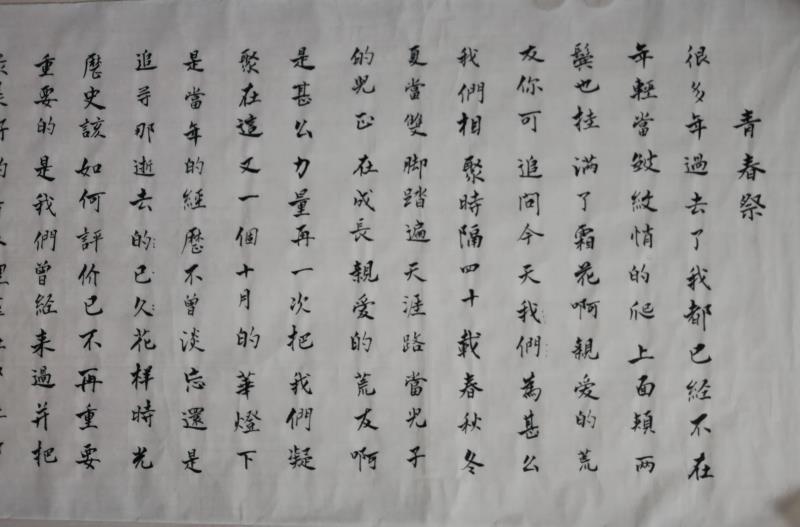 青春祭
很多年過去了我都已經不在
年輕當皱紋悄的爬上面頰兩
鬓也挂满了霜花啊親爱的荒
友你可追问今天我們為甚么
我們相聚時隔四十載春秋冬
夏當雙脚踏遍天涯路當児子
的児正在成長親爱的荒友啊
是甚么力量再一次把我們凝
聚在這又一個十月的華燈下
是當年的經歷不曾淡忘還是
追寻那逝去的已久花样時光
歷史該如何評价已不再重要
重要的是我們曾经来過并把